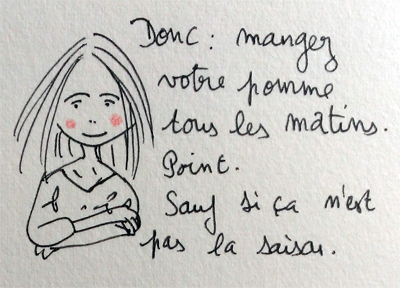 Donc : mangez
votre pomme
tous les matins.
Point.
Sauf si ça n'est
pas la saison.